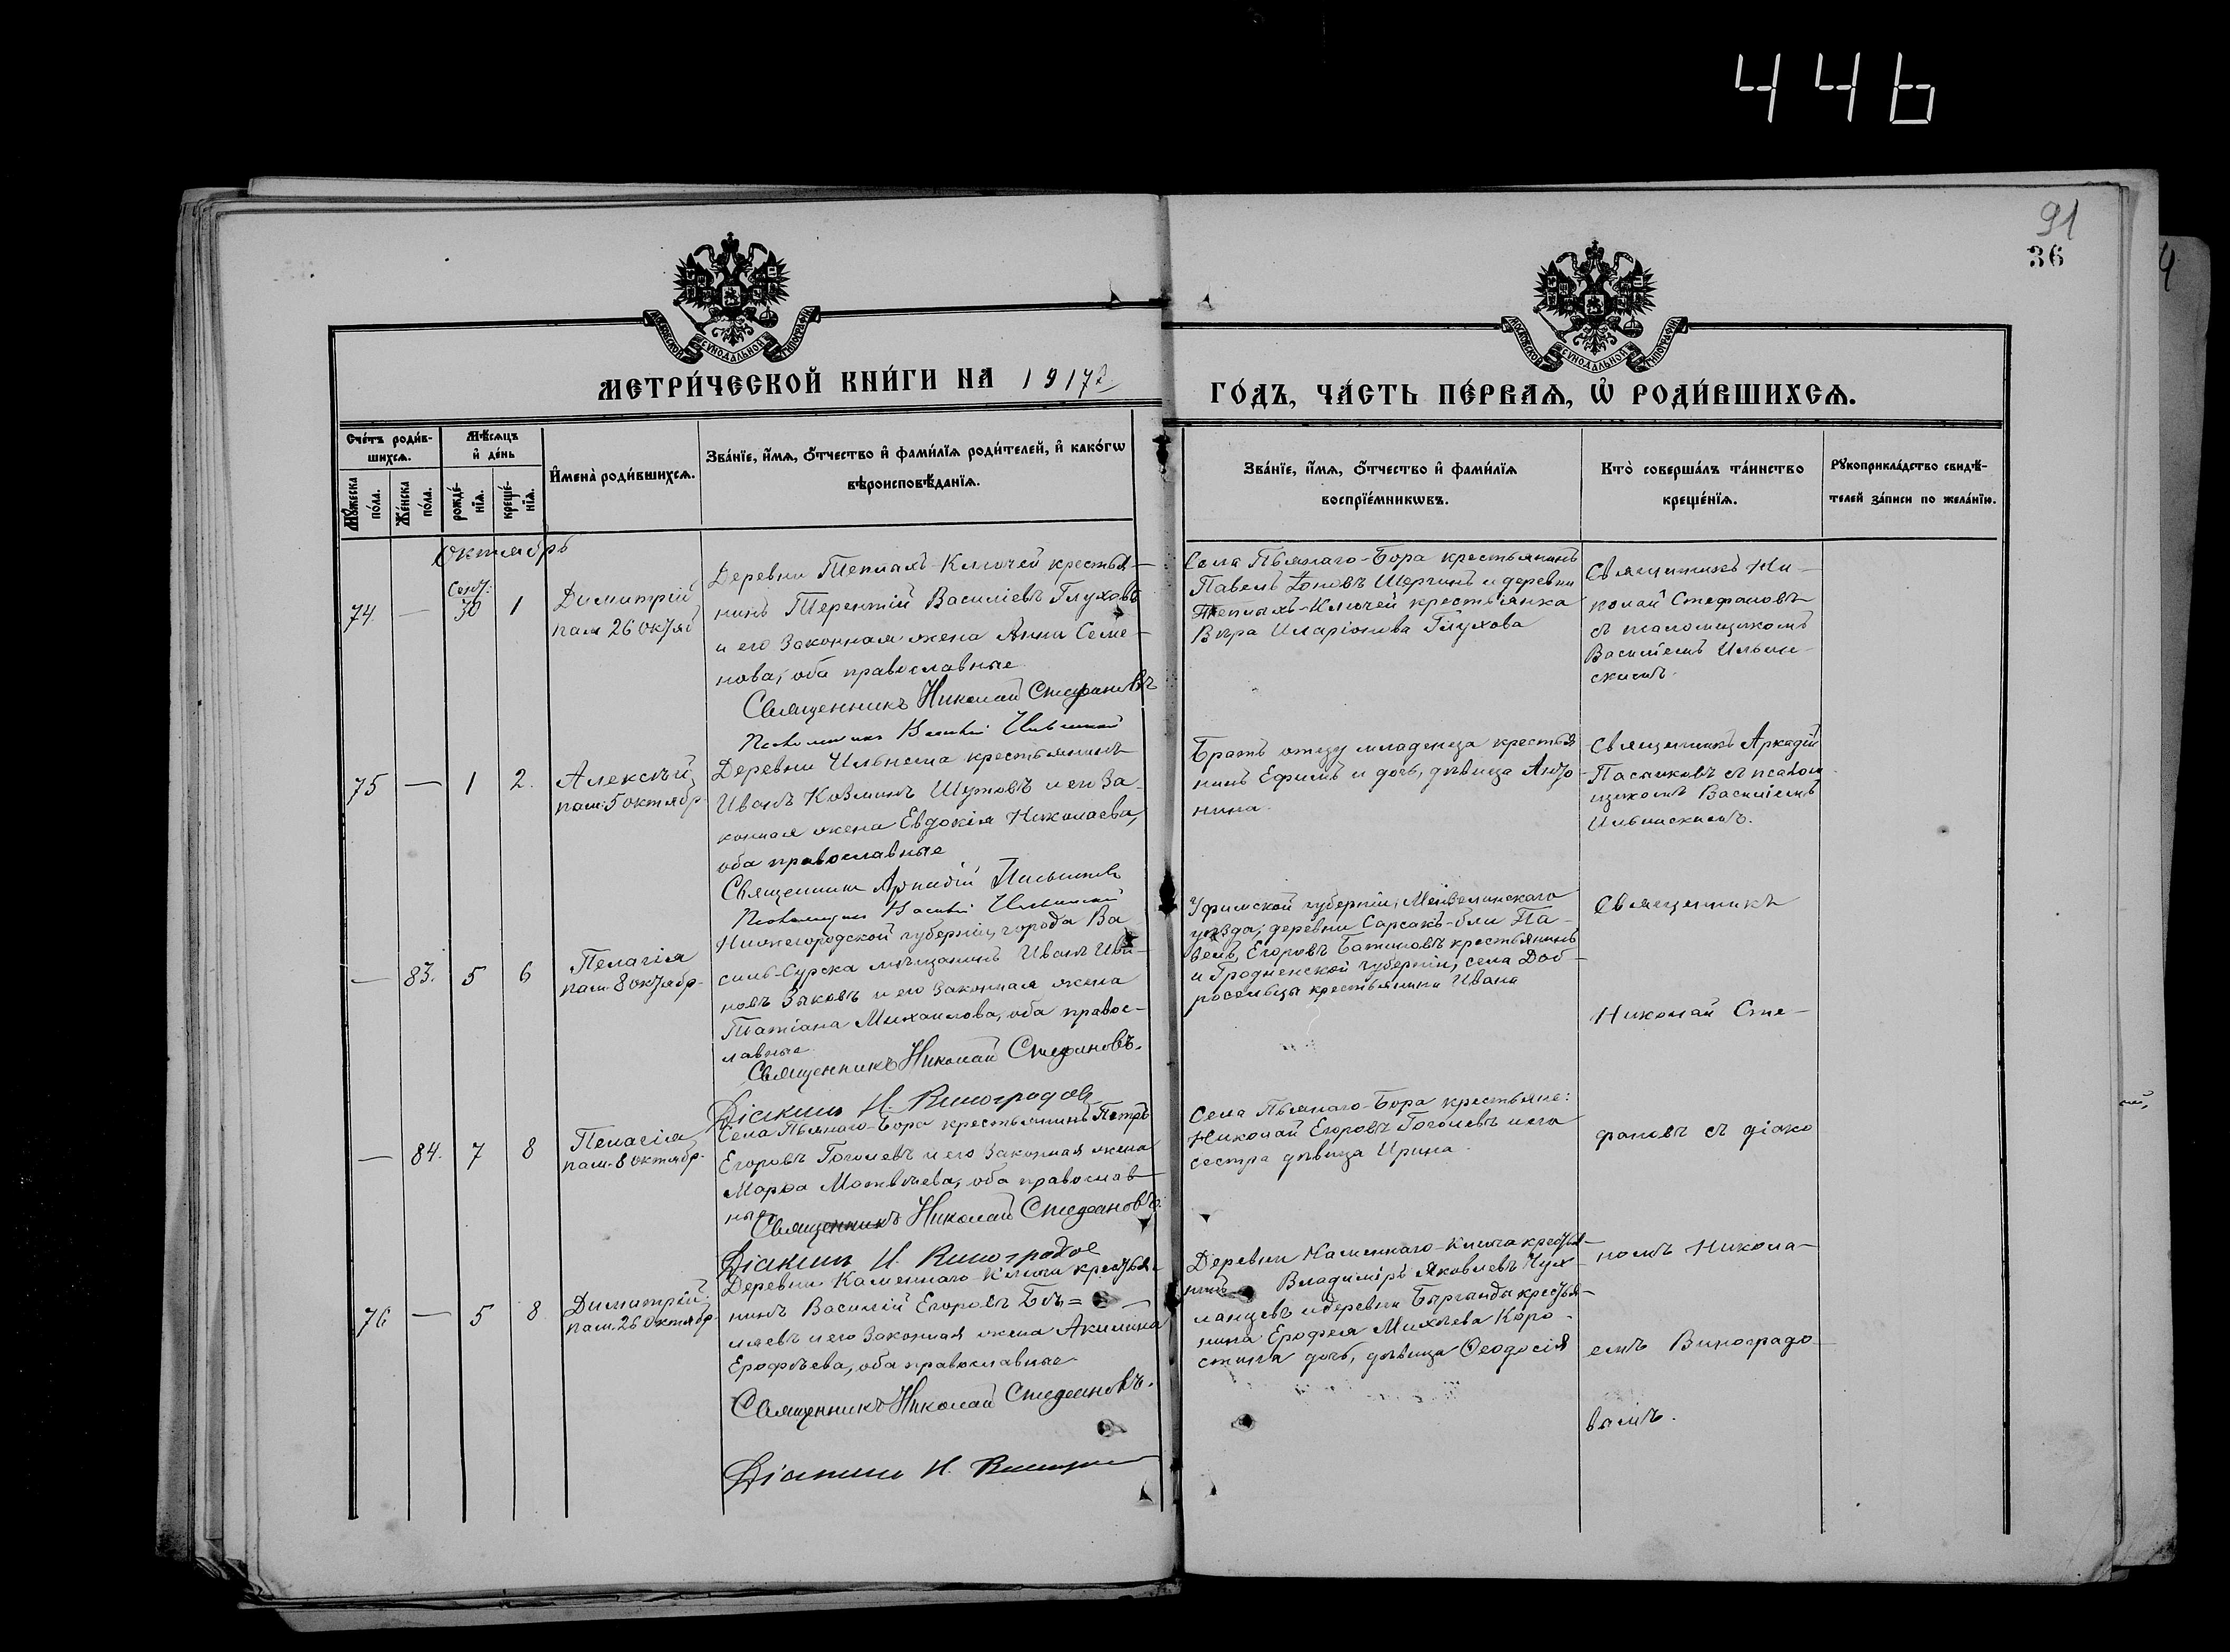 446
91
36
МОСКОВСКОЙ СѴНОДАЛЬНОЙ ТИПОГРАФІИ
МОСКОВСКОЙ СѴНОДАЛЬНОЙ ТИПОГРАФІИ
МЕТРИ́ЧЕСКОЙ КНИ́ГИ НА 1917й
ГО́ДЪ, ЧА́СТЬ ПЕ́РВАѦ, Ѡ҆ РОДИ́ВШИХСѦ.
Сче́тъ роди́в-
шихсѧ.
Мѣ́сѧцъ
и҆ де́нь
Мꙋ́жеска
по́ла.
Же́нска
по́ла.
рожде́-
нїѧ.
креще́-
нїѧ.
И҆мена̀ роди́вшихсѧ.
Зва́нїе, и҆́мѧ, ѻ҆́тчество и҆ фами́лїѧ роди́телей, и҆ како́гѡ
вѣроисповѣ́данїѧ.
Зва́нїе, и҆́мѧ, ѻ҆́тчество и҆ фами́лїѧ
воспрїе́мникѡвъ.
Кто̀ соверша́лъ та́инство
креще́нїѧ.
Рꙋкоприкла́дство свидѣ́-
телей за́писи по жела́нїю.
Октябрь
74. — Сент. 30 1
Димитрій
пам 26 октяб
Деревни Теплахъ-Ключей крестья-
нинъ Терентій Василіевъ Глуховъ
и его законная жена Анна Семе-
нова, оба православные
Священникъ Николай Стефановъ
Псаломщикъ Василій Ильинскій
Села Пьянаго-Бора крестьянинъ
Павелъ Іоновъ Шергинъ и деревни
Теплыхъ-Ключей крестьянка
Вѣра Иларіонова Глухова
Священникъ Ни-
колай Стефановъ
съ псаломщикомъ
Василіемъ Ильин-
скимъ.
75 — 1 2.
Алексѣй
пам: 5 октябр.
Деревни Ильнеша крестьянинъ
Иванъ Козминъ Шутовъ и его за-
конная жена Евдокія Николаева,
оба православные
Священникъ Аркадій
Псаломщикъ Василій Ильинскій
Братъ отцу младенца крестья
нинъ Ефимъ и дочь, дѣвица Анто-
нина.
Священникъ Аркадій
съ псалом-
щикомъ Василіемъ
Ильинскимъ.
— 83. 5 6
Пелагія
пам. 8 октябр.
Нижегородской губерніи, города Ва-
силь-Сурска мѣщанинъ Иванъ Ива-
новъ Зыковъ и его законная жена
Татіана Михаилова, оба правос-
лавные
Священникъ Николай Стефановъ.
Діаконъ Н. Виноградовъ
Уфимской губерніи, Мензелинскаго
уѣзда, деревни Сарсакъ-бли Па-
велъ Егоровъ Батиковъ крестьянинъ
и Гродненской губерніи, села Доб-
крестьянина Ивана
Священникъ
Николай Сте-
— 84. 7 8
Пелагія
пам. 8 октябр.
Села Пьянаго-Бора крестьянинъ Петръ
Егоровъ Гоголевъ и его законная жена
Марѳа Матвѣева, оба православ-
ные
Священникъ Николай Стефановъ.
Діаконъ Н. Виноградов
Села Пьянаго-Бора крестьяне:
Николай Егоровъ Гоголевъ и его
сестра дѣвица Ирина.
фановъ съ діако
76 — 5 8
Димитрій.
пам. 26 октябр.
Деревни Каменнаго-Ключа крестья-
нинъ Василій Егоровъ Бѣ=
ляевъ и его законная жена Акилина
Ерофѣева, оба православные
Священникъ Николай Стефановъ.
Діаконъ Н.
Деревни Каменнаго-Ключа крестья-
нинъ Владиміръ Яковлевъ Чух-
ланцевъ и деревни Бырганды крестья-
нина Ерофея Михѣева Коро-
стина дочь, дѣвица Ѳеодосія
номъ Никола-
емъ Виноградо-
вымъ.